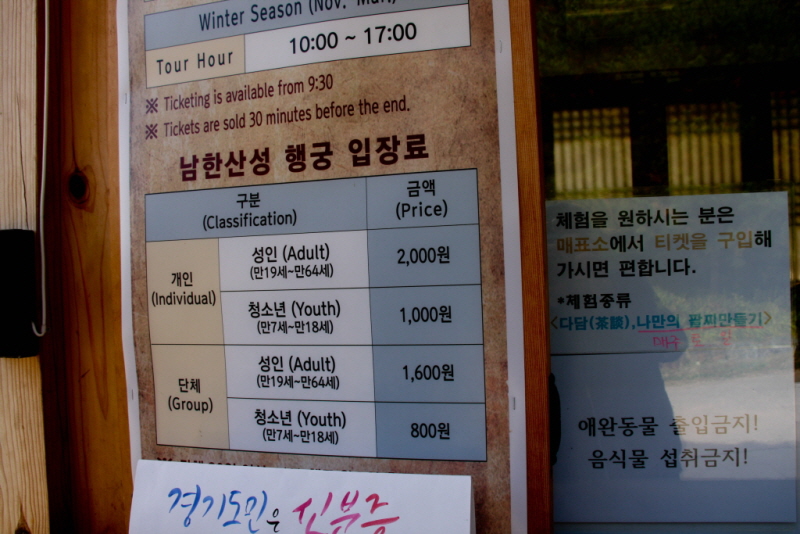 Winter Season (Nov. ~ Mar.)
Tour Hour
10:00 ~ 17:00
※ Ticketing is available from 9:30
※ Tickets are sold 30 minutes before the end.
남한산성 행궁 입장료
구분
(Classification)
금액
(Price)
개인
(Individual)
성인 (Adult)
(만19세~만64세)
2,000원
청소년 (Youth)
(만7세~만18세)
1,000원
단체
(Group)
성인 (Adult)
(만19세~만64세)
1,600원
청소년 (Youth)
(만7세~만18세)
800원
경기도민은 신분증
체험을 원하시는 분은
매표소에서 티켓을 구입해
가시면 편합니다.
*체험종류
<다담(茶談),나만의 팔찌만들기>
애완동물 출입금지!
음식물 섭취금지!